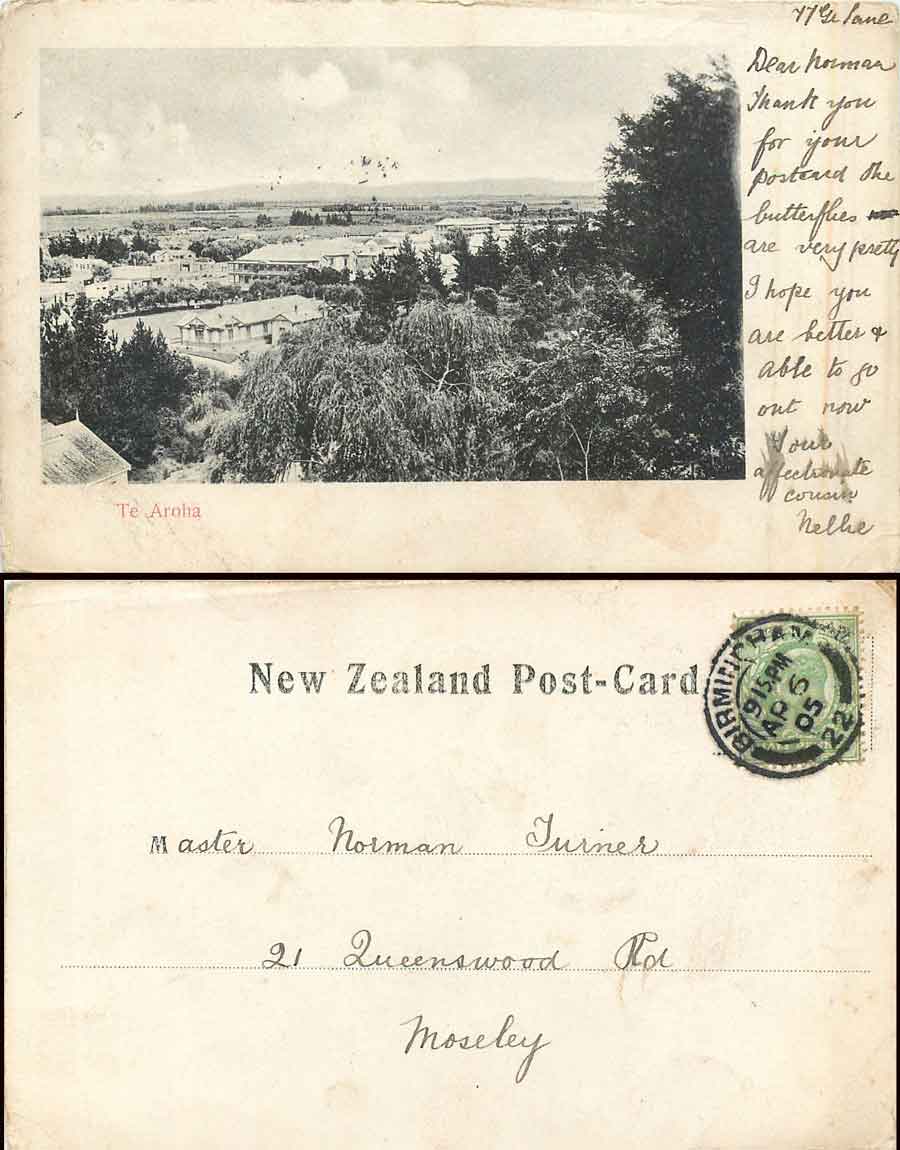 Dear Norman
Thank you
for your
postcard the
butterflies
are very pretty
I hope you
are better &
able to go
out now
Your
affectionate
cousin
Nellie
Te Aroha
New Zealand Post-Card
BIRMINGHAM
9 15 PM
AP 6
05
22
Master Norman Turner
21 Queenswood Rd
Moseley